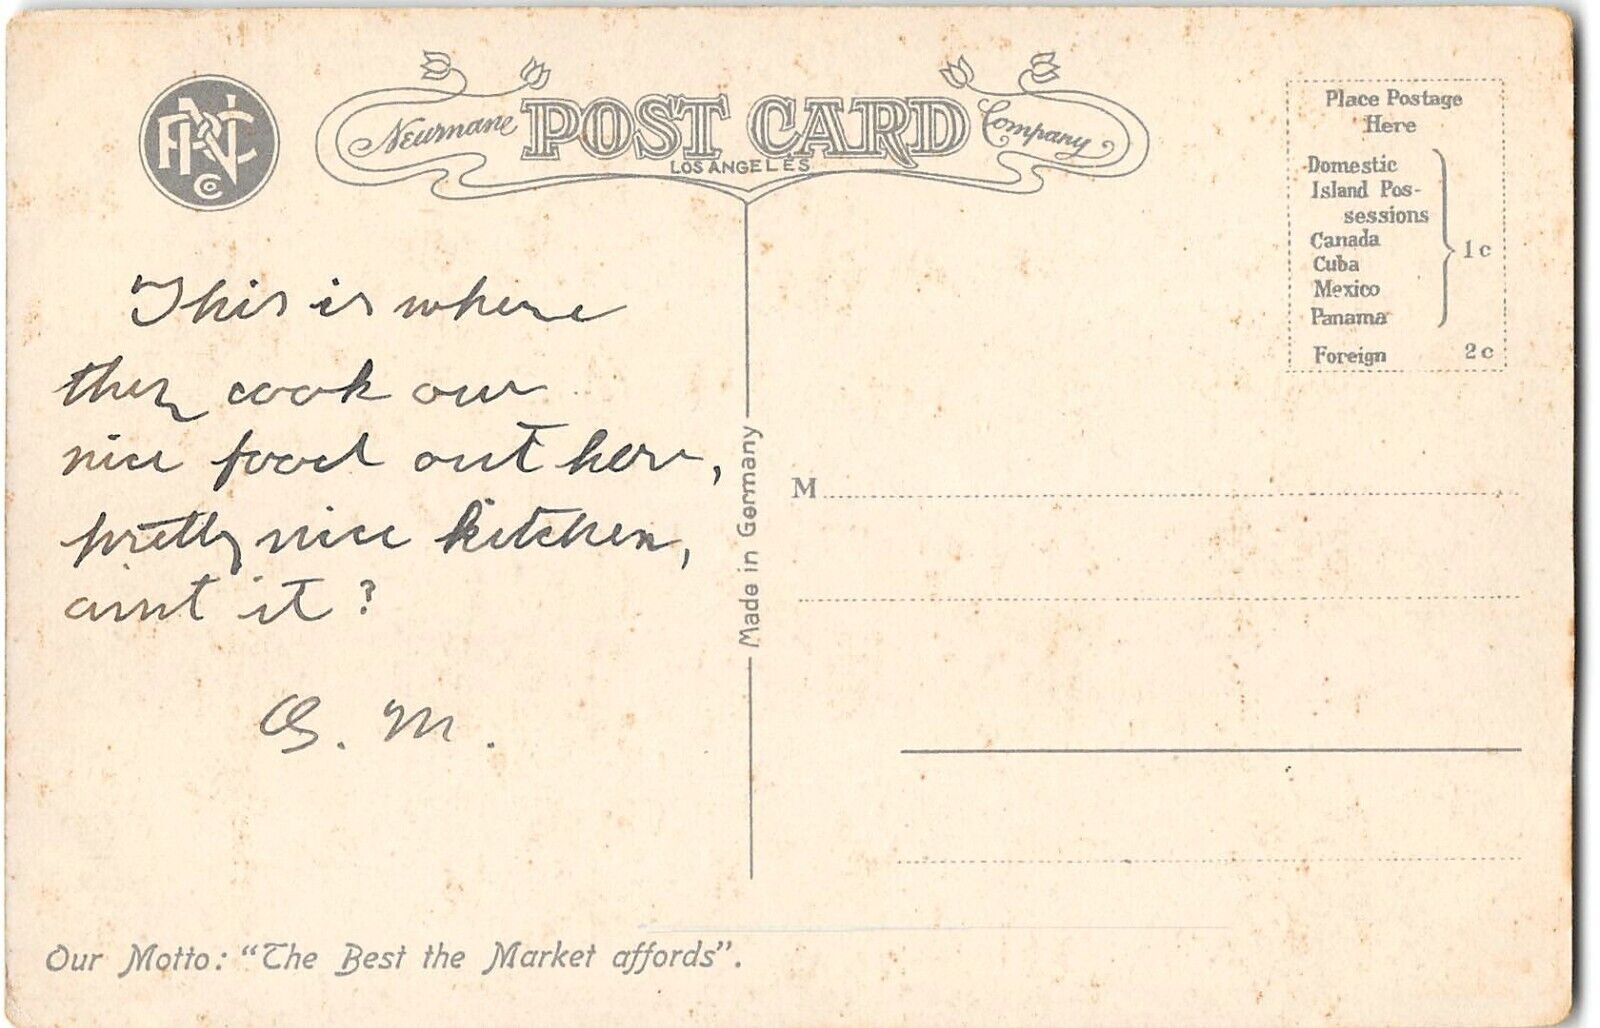 Newmane POST CARD Company
LOS ANGELES
Place Postage
Here
Domestic
Island Pos-
sessions
Canada
Cuba
Mexico
Panama
1c
Foreign 2c
This is where
they cook our
nice food out here,
pretty nice kitchen,
aint it?
G. M.
Made in Germany
M
Our Motto: "The Best the Market affords".